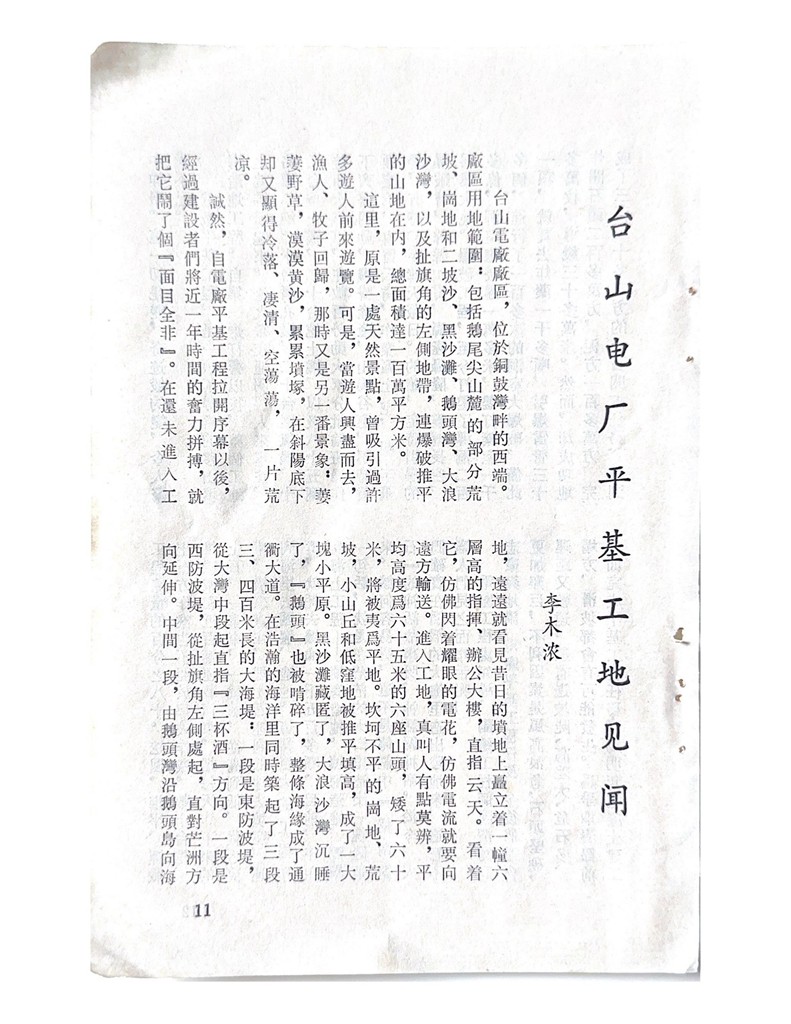 台山电厂平基工地见闻
李木浓
台山電廠廠區，位於銅鼓灣畔的西端。
廠區用地範圍：包括鵝尾尖山麓的部分荒
坡、崗地和二坡沙、黑沙灘、鵝頭灣、大浪
沙灣，以及扯旗角的左側地帶，連爆破推平
的山地在内，總面積達一百萬平方米。
這里，原是一處天然景點，曾吸引過許
多遊人前來遊覽。可是，當遊人興盡而去，
漁人、牧子回歸，那時又是另一番景象：萋
萋野草，漠漠黄沙，累累墳塚，在斜陽底下
却又顯得冷落、凄清、空蕩蕩，一片荒
凉。
誠然，自電廠平基工程拉開序幕以後，
經過建設者們將近一年時間的奮力拼搏，就
把它鬧了個『面目全非』。在還未進入工
地，遠遠就看見昔日的墳地上矗立着一幢六
層高的指揮、辦公大樓，直指云天。看着
它，仿佛閃着耀眼的電花，仿佛電流就要向
遠方輸送。進入工地，真叫人有點莫辨，平
均高度爲六十五米的六座山頭，矮了六十
米，將被夷爲平地。坎坷不平的崗地、荒
坡，小山丘和低窪地被推平填高，成了一大
塊小平原。黑沙灘藏匿了，大浪沙灣沉睡
了，『鵝頭』也被啃碎了，整條海緣成了通
衢大道。在浩瀚的海洋里同時築起了三段
三、四百米長的大海堤：一段是東防波堤，
從大灣中段起直指『三杯酒』方向。一段是
西防波堤，從扯旗角左側處起，直對芒洲方
向延伸。中間一段，由鵝頭灣沿鵝頭島向海
11